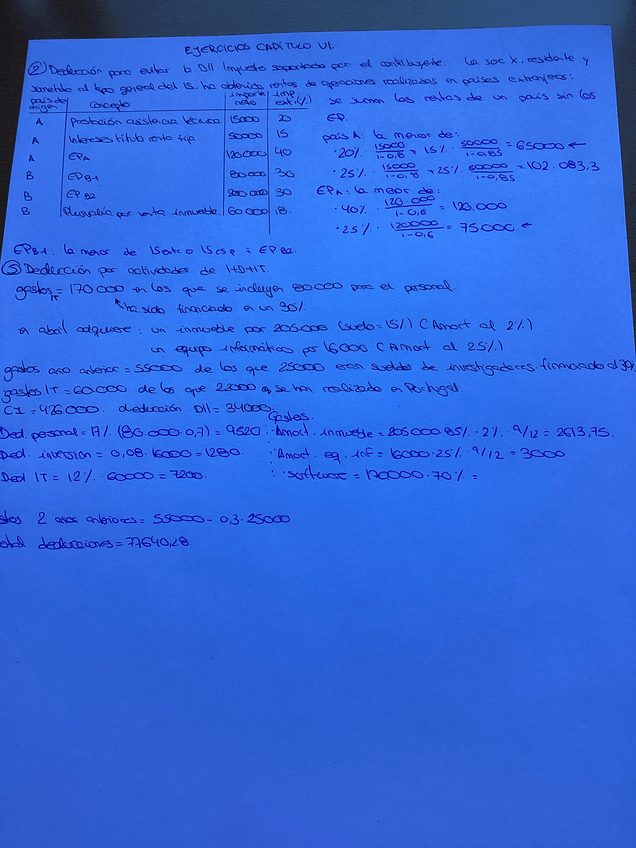 EJERCICIOS CAPÍTULO VI.
② Deducción para evitar la DII Impuesto soportado por el contribuyente. La soc X, residente y
sometida al tipo general del IS. ha obtenido rentas de operaciones realizadas en países extranjeros:
país de origen Concepto importe neto imp. ext.(%)
A Prestación asistencia técnica 15000 20
A Intereses titulo renta fija 50000 15
A EPA 120.000 40
B EPB1 80.000 30
B EPB2 200.000 30
B Plusvalía por venta inmueble 60000 18.
se suman las rentas de un país sin los
EP.
país A: la menor de:
· 20% · 15000/1-0,8 + 15% · 50000/1-0,85 = 65000 ←
· 25% · 15000/1-0,8 + 25% · 50000/1-0,85 = 102.083,3
EPA: la menor de:
· 40% · 120.000/1-0,6 = 120.000
· 25% · 120000/1-0,6 = 75000 ←
EPB1: la menor de ISextr o ISesp ; EPB2.
③ Deducción por actividades de I+D+IT.
gastos IT = 170000 en los que se incluyen 80000 para el personal.
↖ ha sido financiado en un 30%.
en abril adquiere: un inmueble por 205000 (suelo=15%) (Amort al 2%)
un equipo informático por 16000 (Amort al 25%)
gastos año anterior = 55000 de los que 25000 eran sueldos de investigadores. financiado al 30
gastos IT = 60.000 de los que 22000 se han realizado en Portugal.
CI = 426000. deducción DII = 34000
Gastos.
Ded. personal = 17% (80.000·0,7) = 9520 : Amort. inmueble = 205000·85%·2% · 9/12 = 2613,75.
Ded. inversión = 0,08·16000 = 1280. : Amort. eq. inf = 16000·25% · 9/12 = 3000
Ded IT = 12% · 60000 = 7200. : software = 170000·70% =
stos 2 años anteriores = 55000 - 0,3·25000
otal deducciones = 77640,28